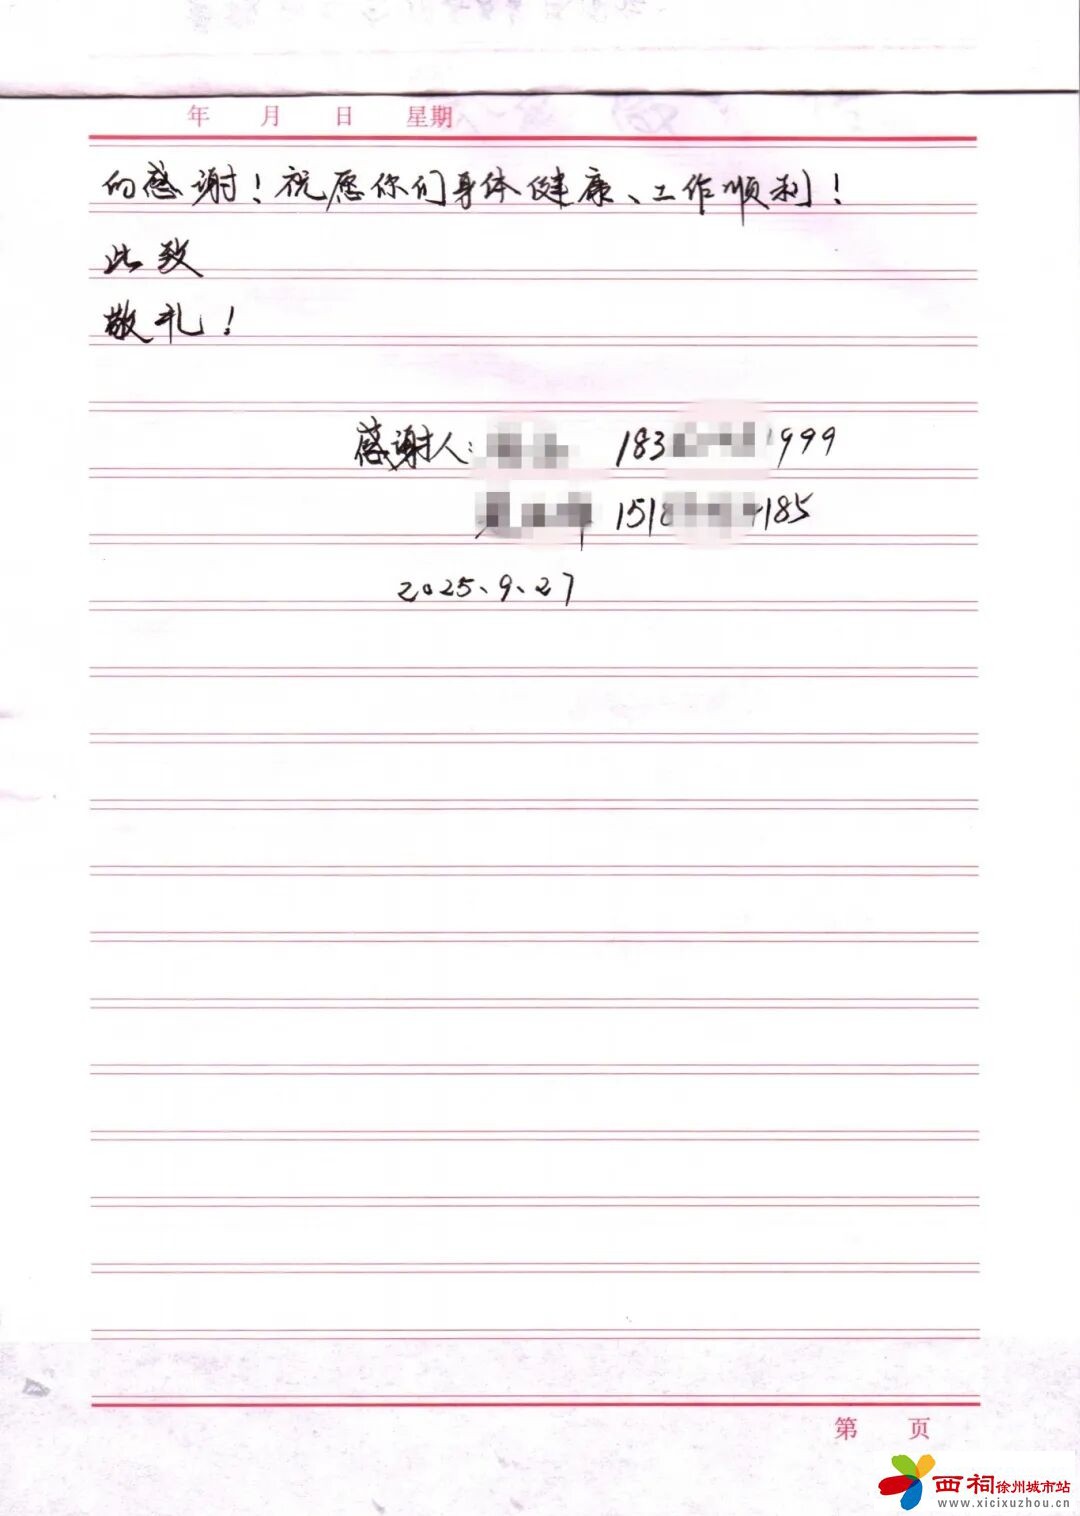 年 月 日 星期
的感谢！祝愿你们身体健康、工作顺利！
此致
敬礼！
感谢人： 183 999
1518 185
2025、9、27
第 页
西祠徐州城市站
www.xicixuzhou.cn